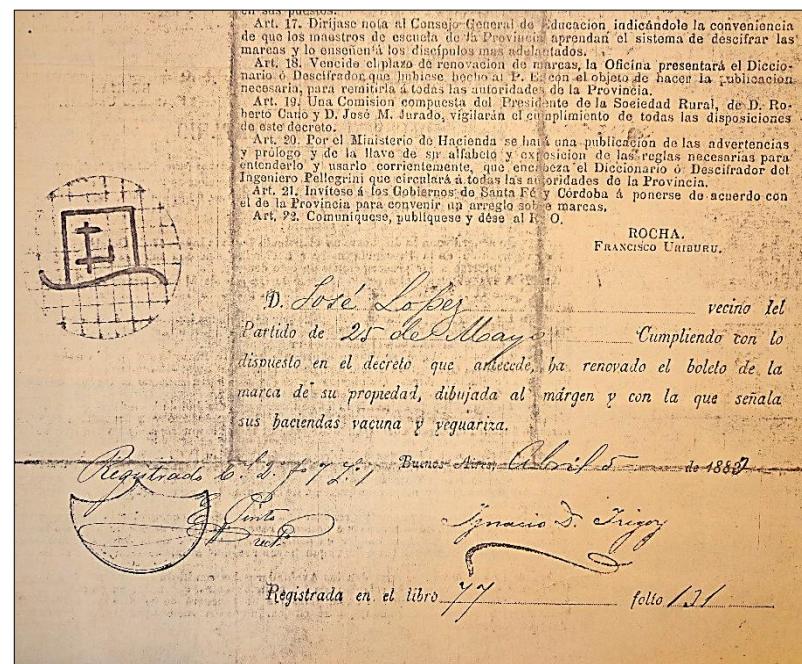 en sus puestos.
Art. 17. Diríjase nota al Consejo General de Educacion indicándole la conveniencia
de que los maestros de escuela de la Provincia aprendan el sistema de descifrar las
marcas y lo enseñen á los discípulos mas adelantados.
Art. 18. Vencido el plazo de renovacion de marcas, la Oficina presentará el Diccio-
nario ó Descifrador que hubiese hecho al P. E. con el objeto de hacer la publicacion
necesaria, para remitirla á todas las autoridades de la Provincia.
Art. 19. Una Comision compuesta del Presidente de la Sociedad Rural, de D. Ro-
berto Cano y D. José M. Jurado, vigilarán el cumplimiento de todas las disposiciones
de este decreto.
Art. 20. Por el Ministerio de Hacienda se hará una publicacion de las advertencias
y prólogo y de la llave de su alfabeto y exposicion de las reglas necesarias para
entenderlo y usarlo corrientemente, que encabeza el Diccionario ó Descifrador del
Ingeniero Pellegrini que circulará á todas las autoridades de la Provincia.
Art. 21. Invítese á los Gobiernos de Santa Fé y Córdoba á ponerse de acuerdo con
el de la Provincia para convenir un arreglo sobre marcas.
Art. 22. Comuníquese, publíquese y dése al R. O.
ROCHA.
FRANCISCO URIBURU.
D. José Lopez vecino del
Partido de 25 de Mayo Cumpliendo con lo
dispuesto en el decreto que antecede, ha renovado el boleto de la
marca de su propiedad, dibujada al márgen y con la que señala
sus haciendas vacuna y yeguariza.
Registrado Buenos Aires, Abril 5 de 188
E. Pinto
Ignacio D. Irigoy
Registrada en el libro 77 folio 131